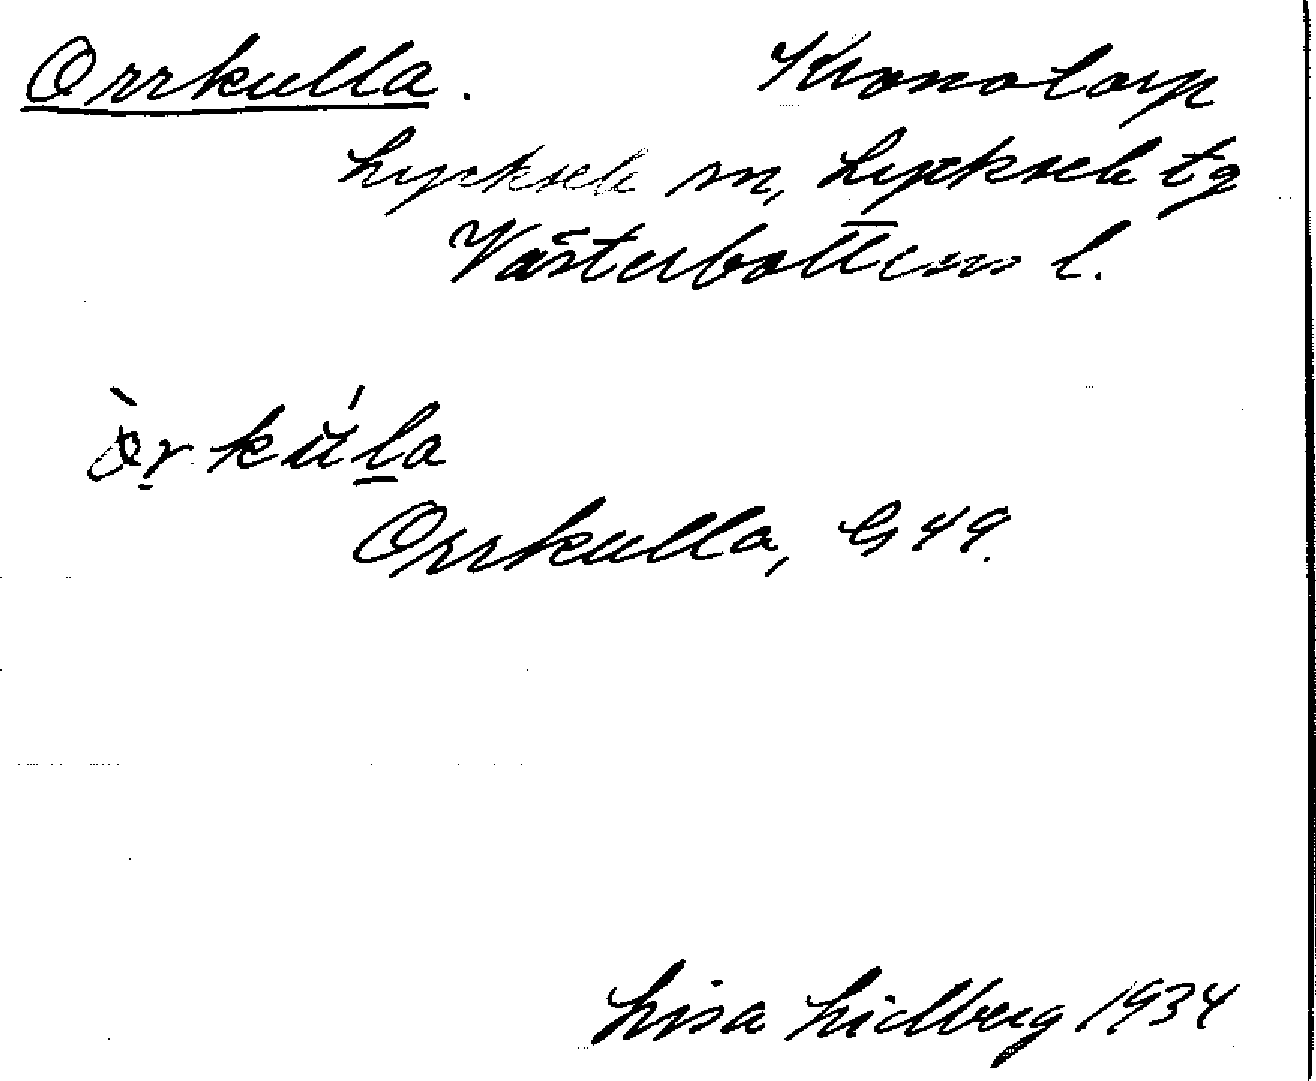 Orrkulla. Kronotorp
Lycksele sn, Lycksele tg
Västerbottens l.
Orrkulla, G 49.
Lisa Lidberg 1934